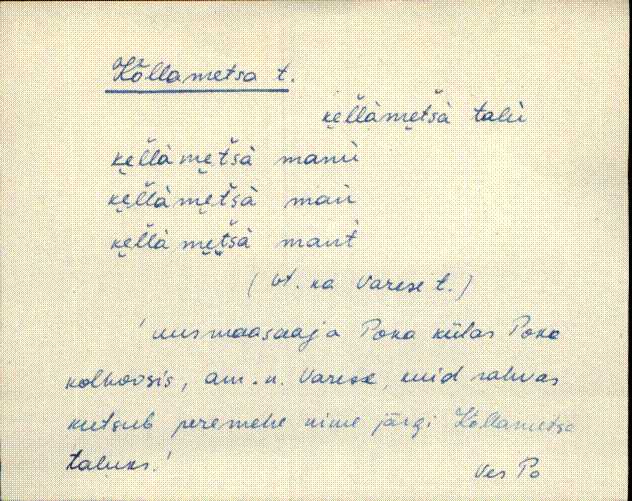 Kõllametsa t.
ke̬l̆l̆àme̬t̆šà talù
ke̬l̆l̆àme̬t̆šà manù
ke̬l̆l̆àme̬t̆šà maù
ke̬l̆l̆àme̬t̆šà mant̀
(vt. ka Varese t.)
'uusmaasaaja Poka külas Poka
kolhoosis, am. n. Varese, kuid rahvas
kutsub peremehe nime järgi Kõllametsa
taluks.'
Ves Po